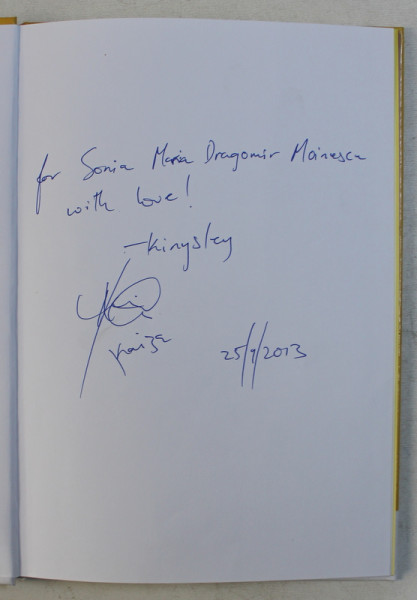 for Sonia Maria Dragomir Moinescu
with love!
-Kingsley
25/9/2013